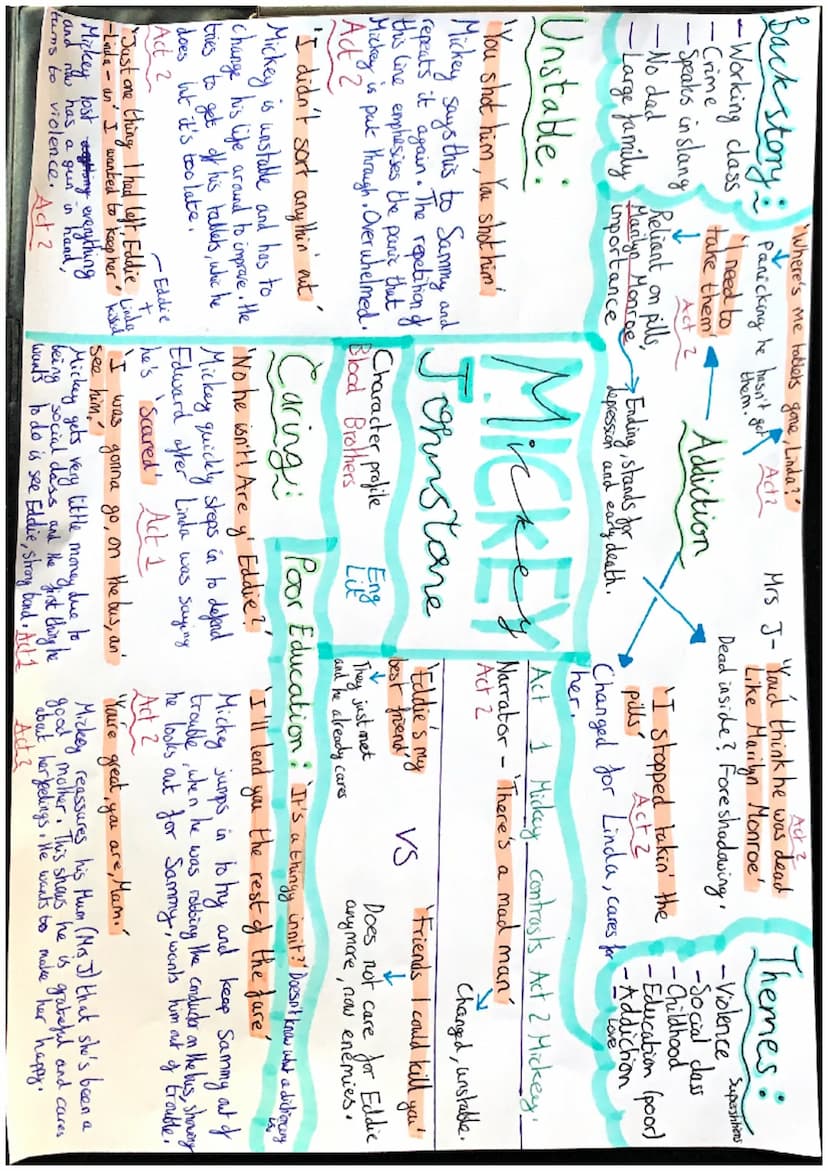 Backstory:
- Working class
- Crime
- Speaks in slang
- No dad
- Large family
'Where's me tablets gone, Linda?'
Panicking he hasn't got
them.
Act 2
'I need to
take them'
Act 2
Reliant on pills,
Marilyn Monroe
importance
Ending, stands for
depression and early death.
Addiction
Mrs J - 'You'd think he was dead
Like Marilyn Monroe'
Act 2
Dead inside? Foreshadowing.
'I stopped takin' the
pills'
Act 2
Changed for Linda, cares for
her.
Themes:
- Violence
Superstitions
- Social class
- Childhood
- Education (poor)
- Addiction
- Love
Unstable:
'You shot him, You shot him'
Mickey says this to Sammy and
repeats it again. The repetition of
this line emphesises the panic that
Mickey is put through. Overwhelmed.
Act 2
'I didn't sort anythin' out'
Mickey is unstable and has to
change his life around to improve. He
tries to get off his tablets, which he
does but it's too late.
Act 2
'Just one thing I had left, Eddie
- Linda - an' I wanted to keep her'
Eddie
+
Linda
kissed
Mickey lost everything
and now has a gun in hand,
turns to violence.
Act 2
MICKEY
Mickey
Johnstone
Character profile
Blood Brothers
Eng
Lit
Act 1 Mickey contrasts Act 2 Mickey.
Narrator - 'There's a mad man'
Act 2
Changed, unstable.
'Eddie's my
best friend'
They just met
and he already cares
VS
'Friends I could kill you'
Does not care for Eddie
anymore, now enemies.
Caring:
'No he isn't! Are y' Eddie?'
Mickey quickly steps in to defend
Edward after Linda was saying
he's 'Scared' Act 1
'I was gonna go, on the bus, an'
see him,'
Mickey gets very little money due to
being social class and the first thing he
wants to do is see Eddie, strong bond. Act 1
Poor Education: 'It's a thingy innit?' Doesn't know what a dictionary
is.
'I'll lend you the rest of the fare'
Mickey jumps in to try and keep Sammy out of
trouble, when he was robbing the conductor on the bus, showing
he looks out for Sammy, wants him out of trouble.
Act 2
'You're great, you are, Mam.'
Mickey reassures his Mum (Mrs J) that she's been a
good mother. This shows he is grateful and cares
about her feelings. He wants to make her happy.
Act 2